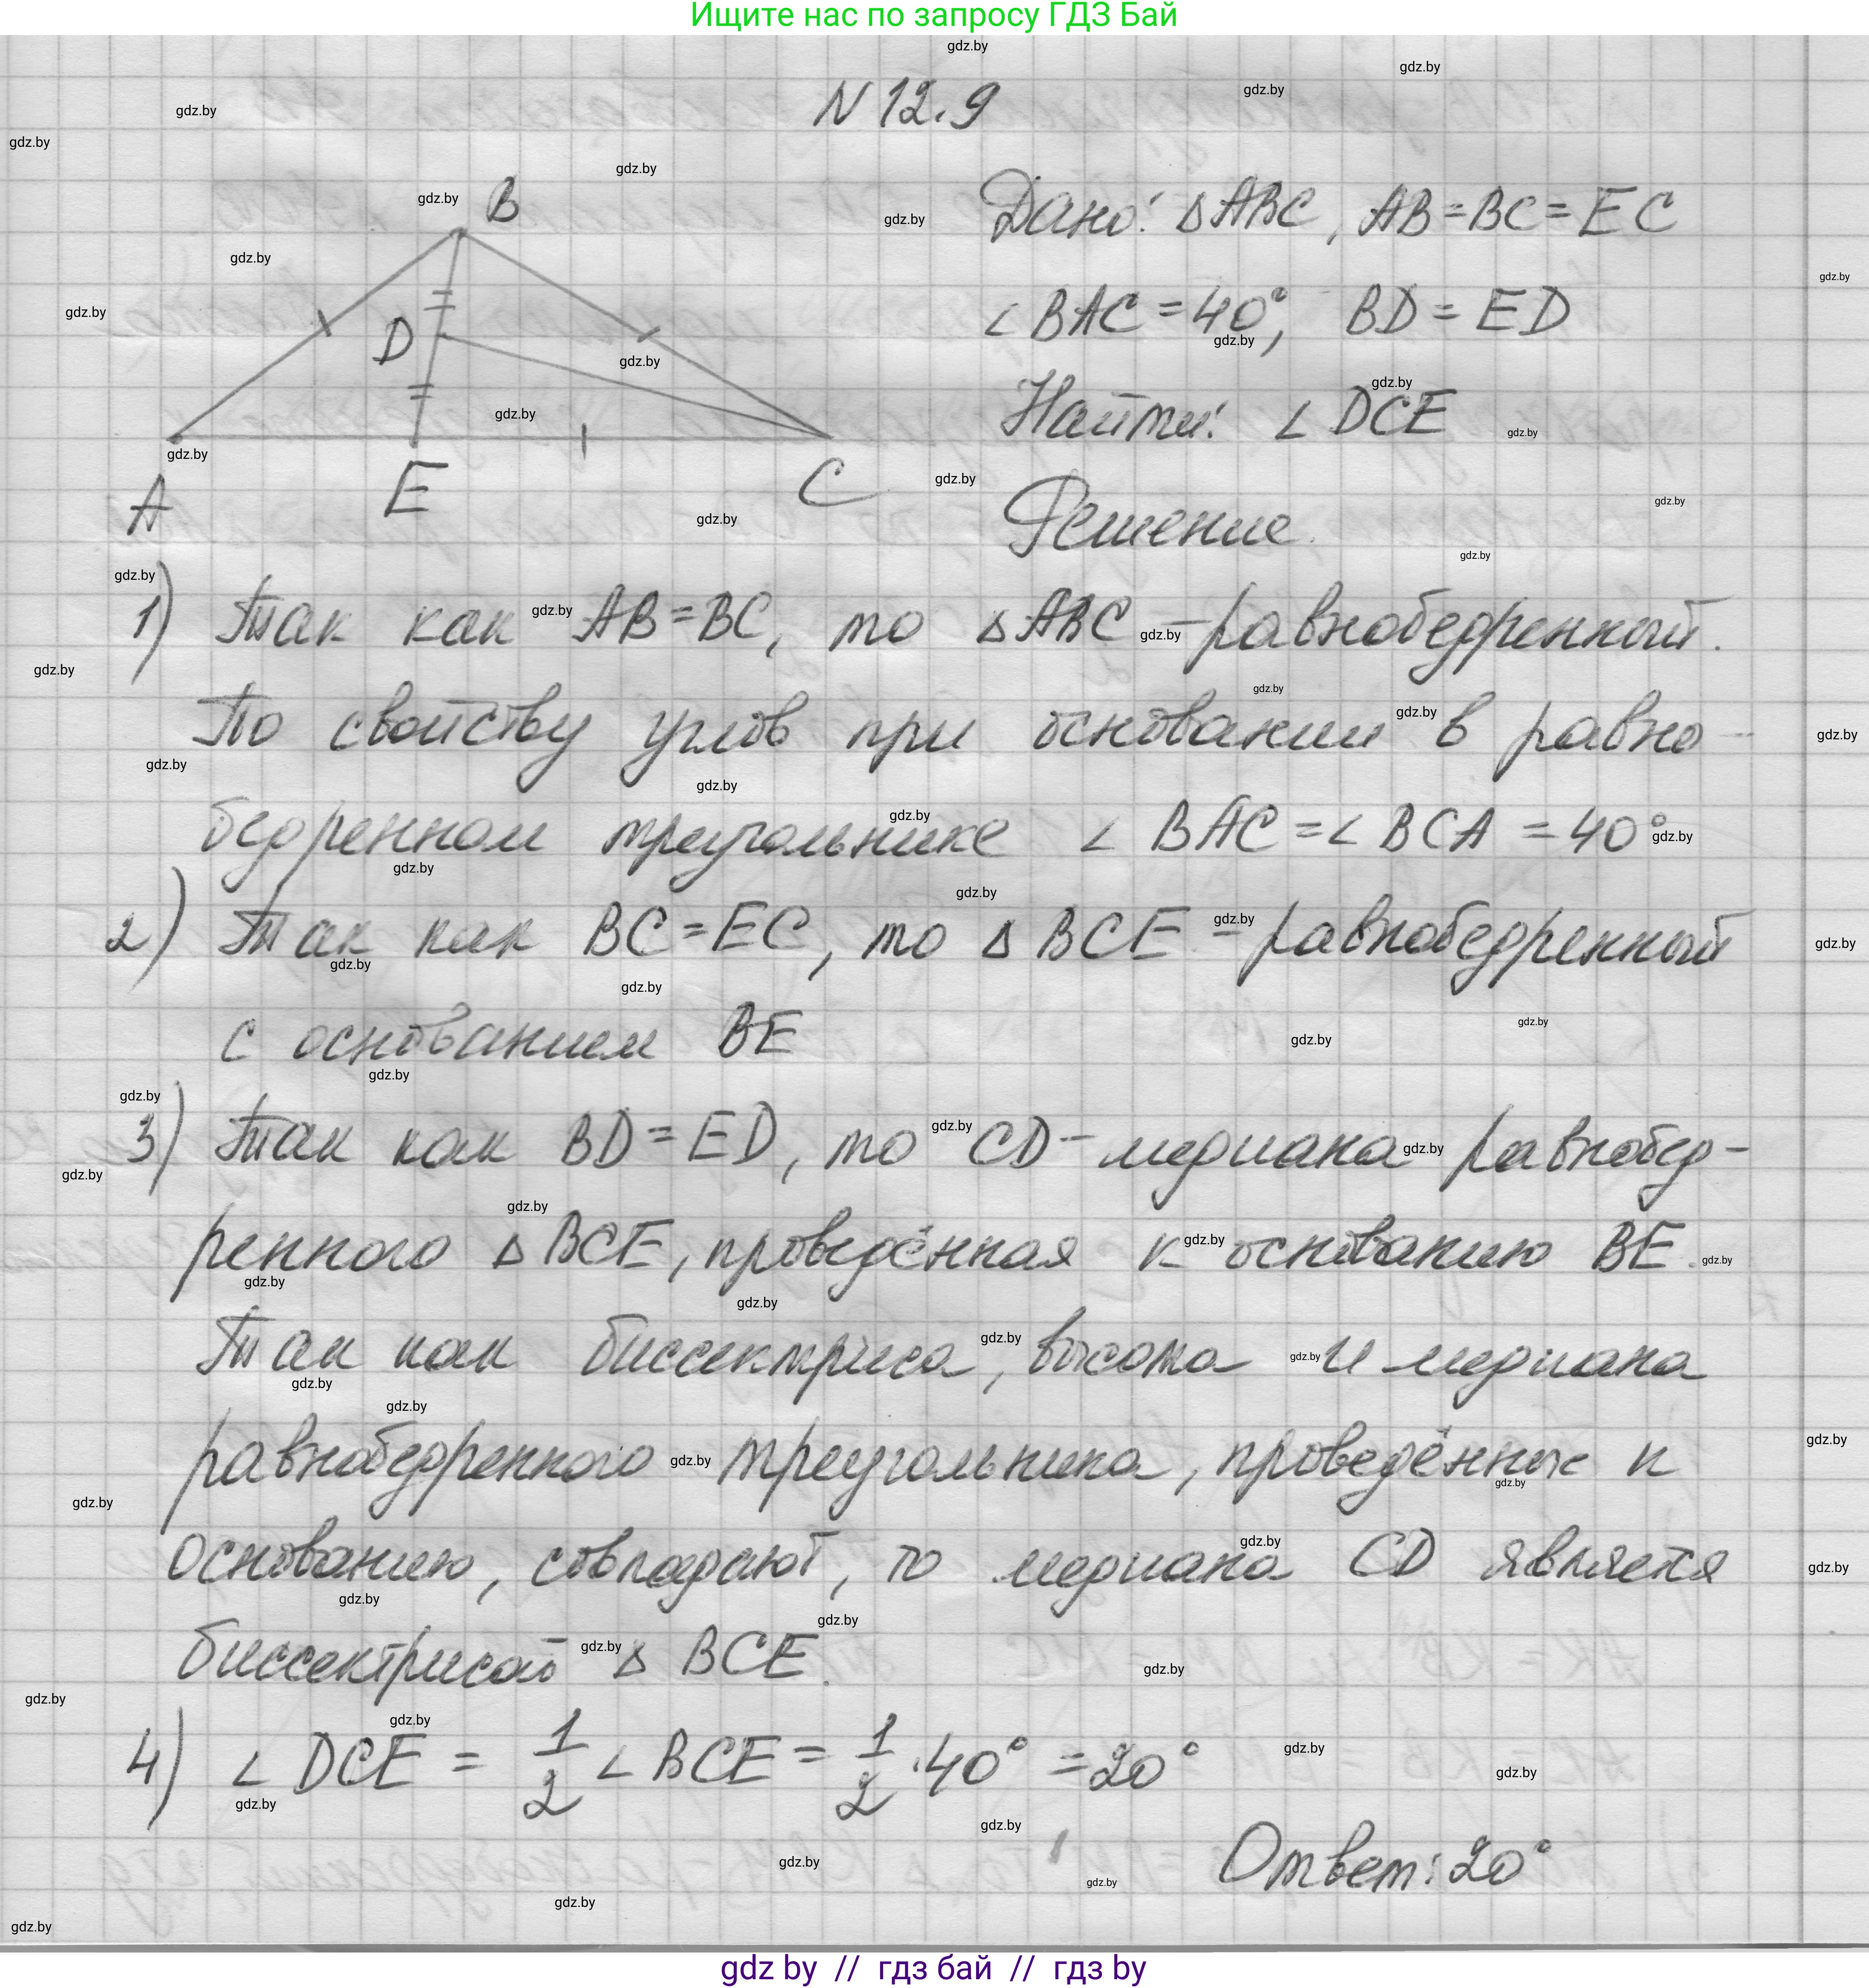 Ищите нас по запросу ГДЗ Бай
N 12.9
B
D
A
E
C
Дано: △ABC, AB=BC=EC
∠BAC=40°, BD=ED
Найти: ∠DCE
Решение.
1) Так как AB=BC, то △ABC - равнобедренный.
По свойству углов при основании в равно-
бедренном треугольнике ∠BAC=∠BCA=40°
2) Так как BC=EC, то △BCE - равнобедренный
с основанием BE
3) Так как BD=ED, то CD - медиана равнобед-
ренного △BCE, проведённая к основанию BE.
Так как биссектриса, высота и медиана
равнобедренного треугольника, проведённые к
основанию, совпадают, то медиана CD является
биссектрисой △BCE.
4) ∠DCE = 1/2 ∠BCE = 1/2 · 40° = 20°
Ответ: 20°
gdz by // гдз бай // гдз by